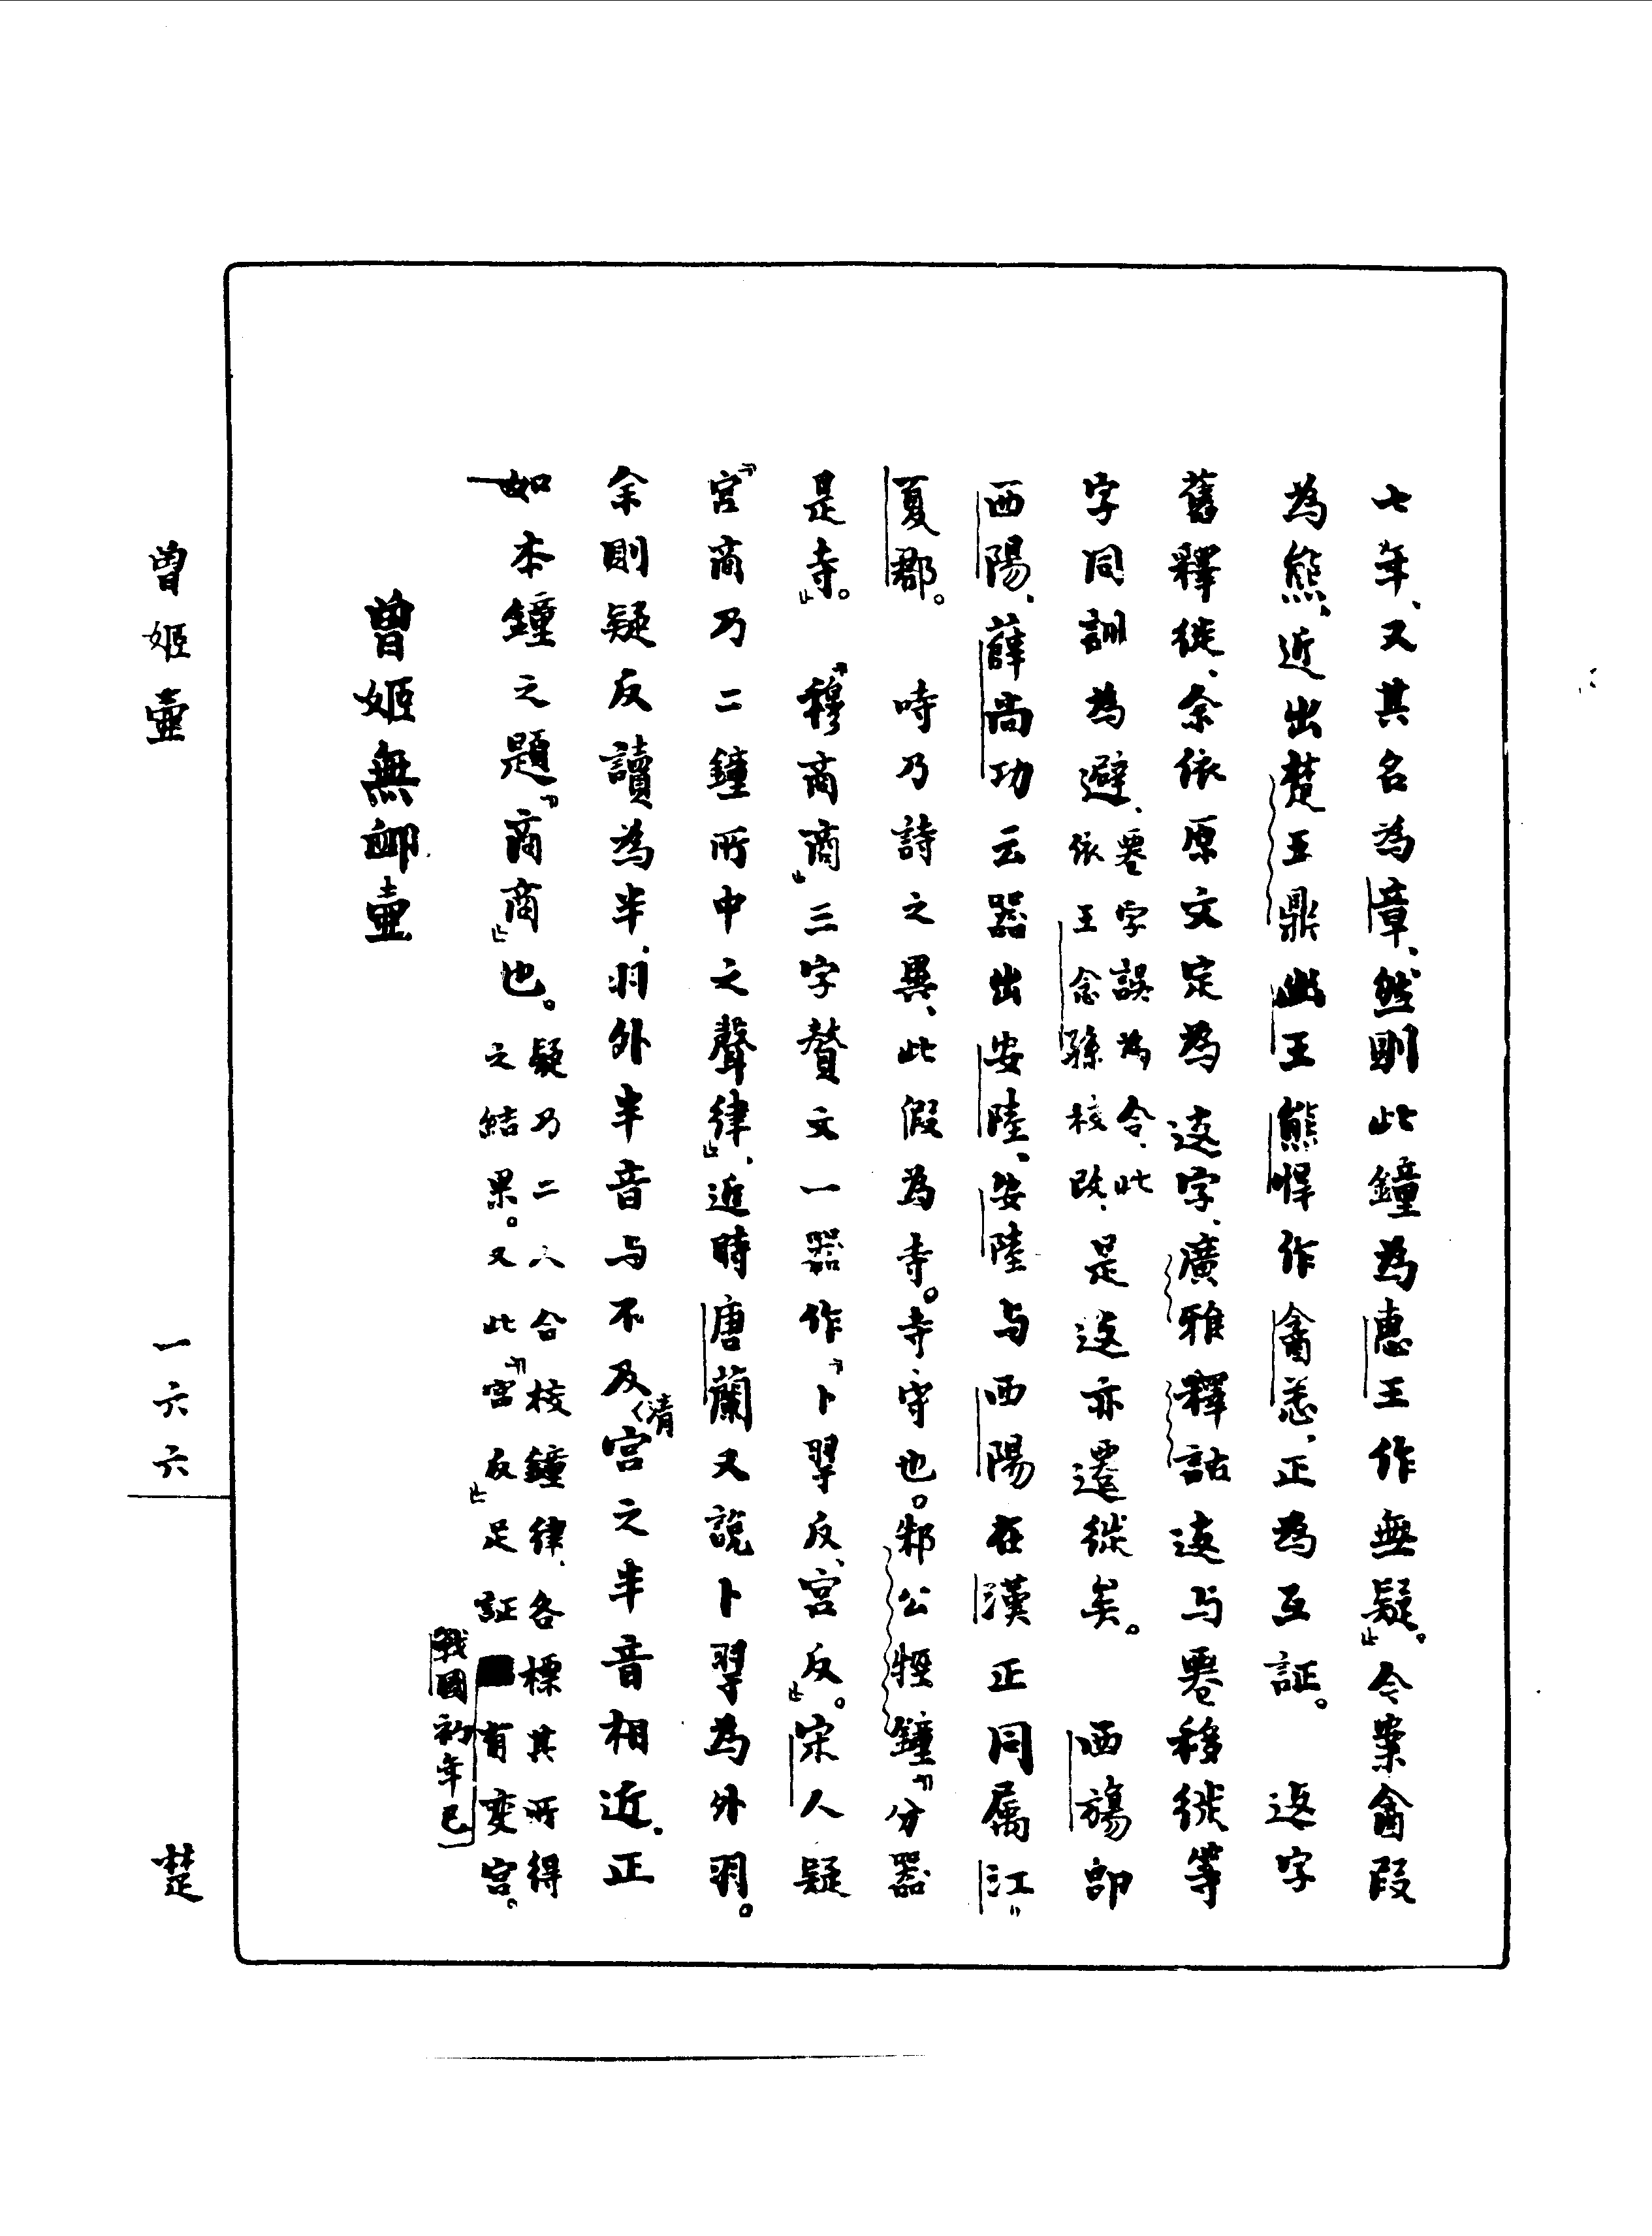 七年、又其名為章、然則此鐘為惠王作無疑』。今案酓叚
為熊、近出楚王鼎幽王熊悍作酓忎、正為互証。　返字
舊釋徙、余依原文定為迻字、廣雅釋詁迻与䙴移徙等
字同訓為避、䙴字誤為令、此依王念孫校改、是迻亦遷徙矣。　西𣄃即
西陽、薛尚功云器出安陸、安陸与西陽在漢正同属江
夏郡。　時乃詩之異、此假為寺。寺守也。邾公牼鐘『分器
是寺』。　『穆商商』三字贅文一器作『卜羽反、宮反』。宋人疑
『宮商乃二鐘所中之聲律』、近時唐蘭又說卜羽為外羽。
余則疑反讀為半、羽外半音与不及〈清宮之半音相近、正
如本鐘之題『商商』也。疑乃二人合校鐘律、各標其所得之結果。又此『宮反』足証有変宮、
戰國初年已
曾姬無卹壺
曾姬壺
一六六
楚